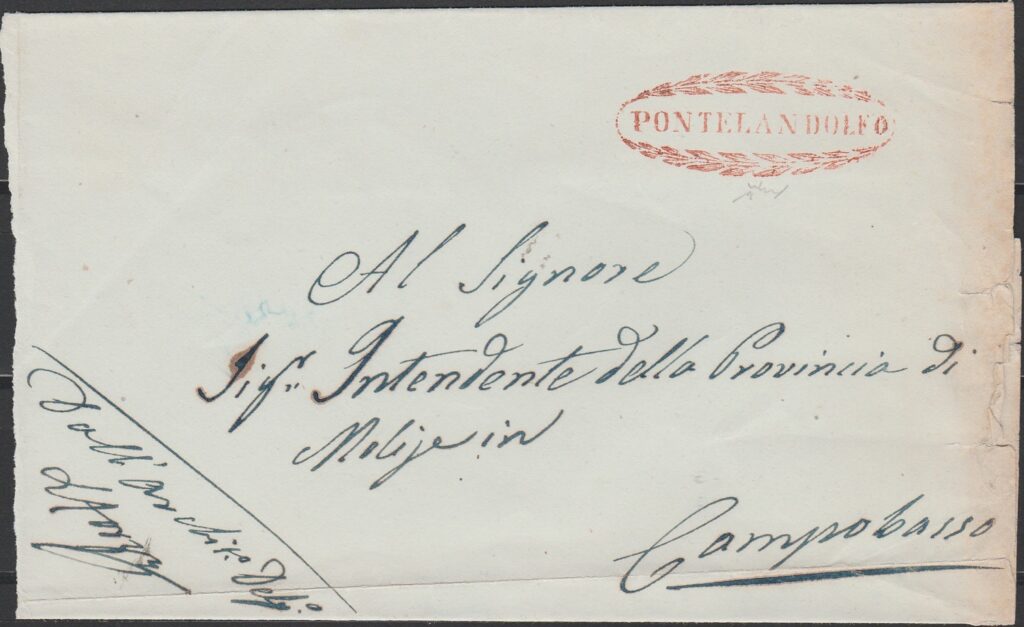 PONTELANDOLFO
Al Signore
Sigr. Intendente della Provincia di
Molise in
Campobasso
Dall'architto Delo